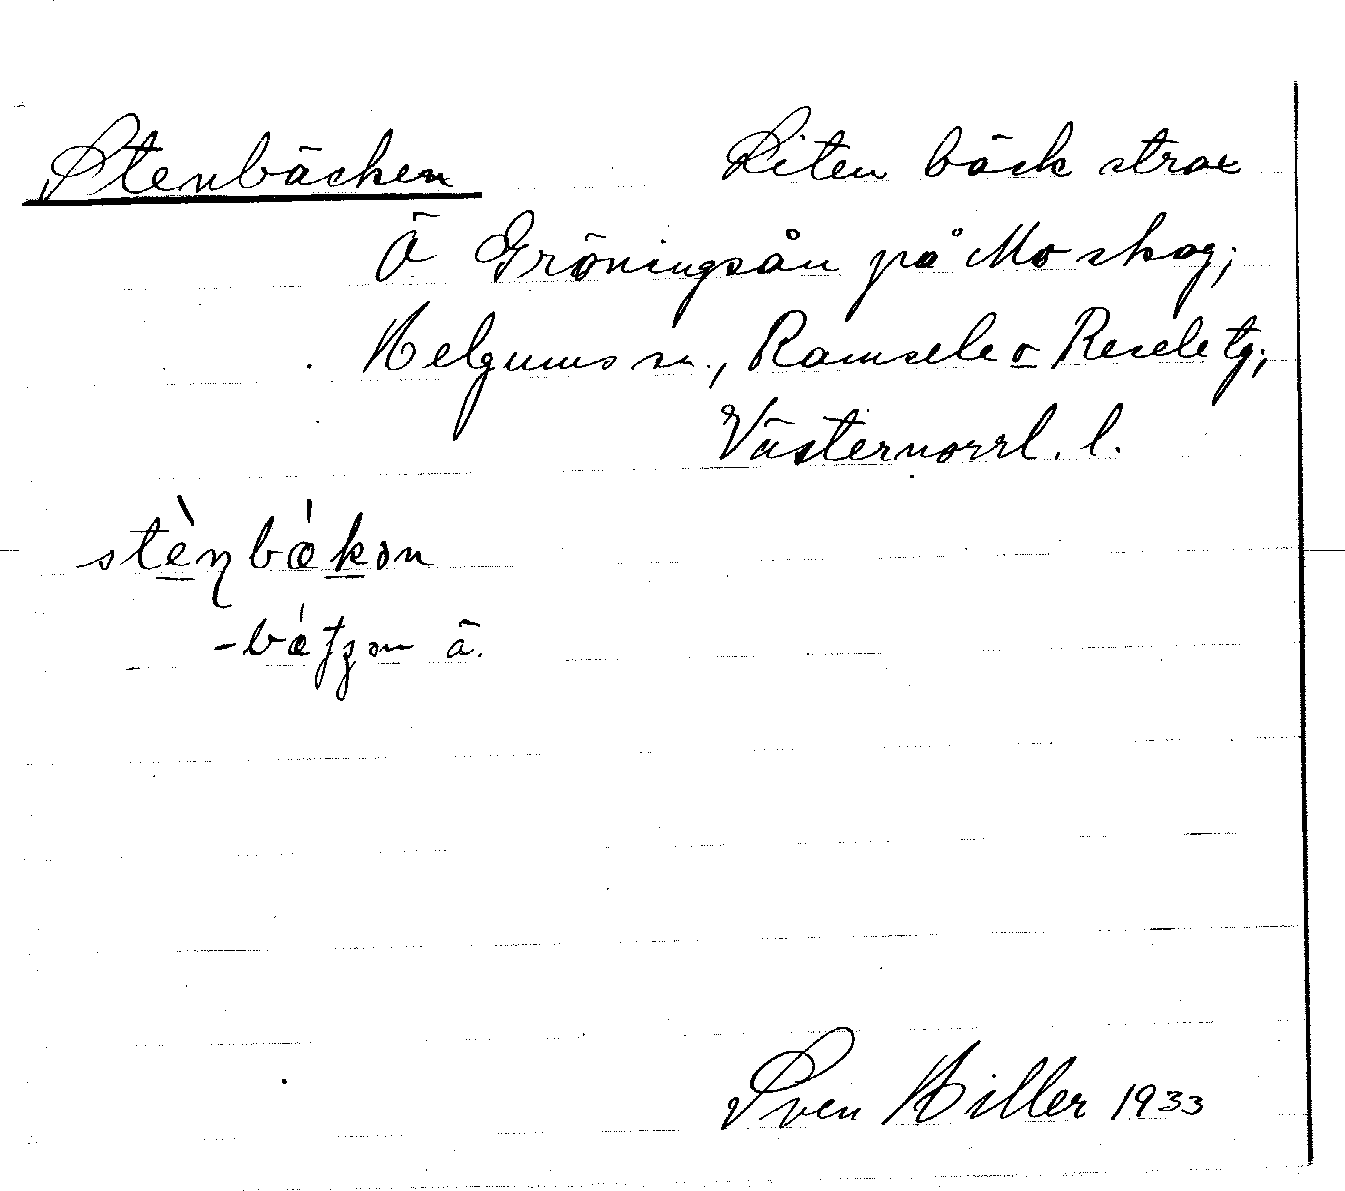 Stenbäcken Liten bäck strax
Ö Gröningsån på Mo skog,
Helgums sn., Ramsele o Resele tg,
Västernorrl. l.
stènbækən
-bæ ən ä.
Sven Hiller 1933